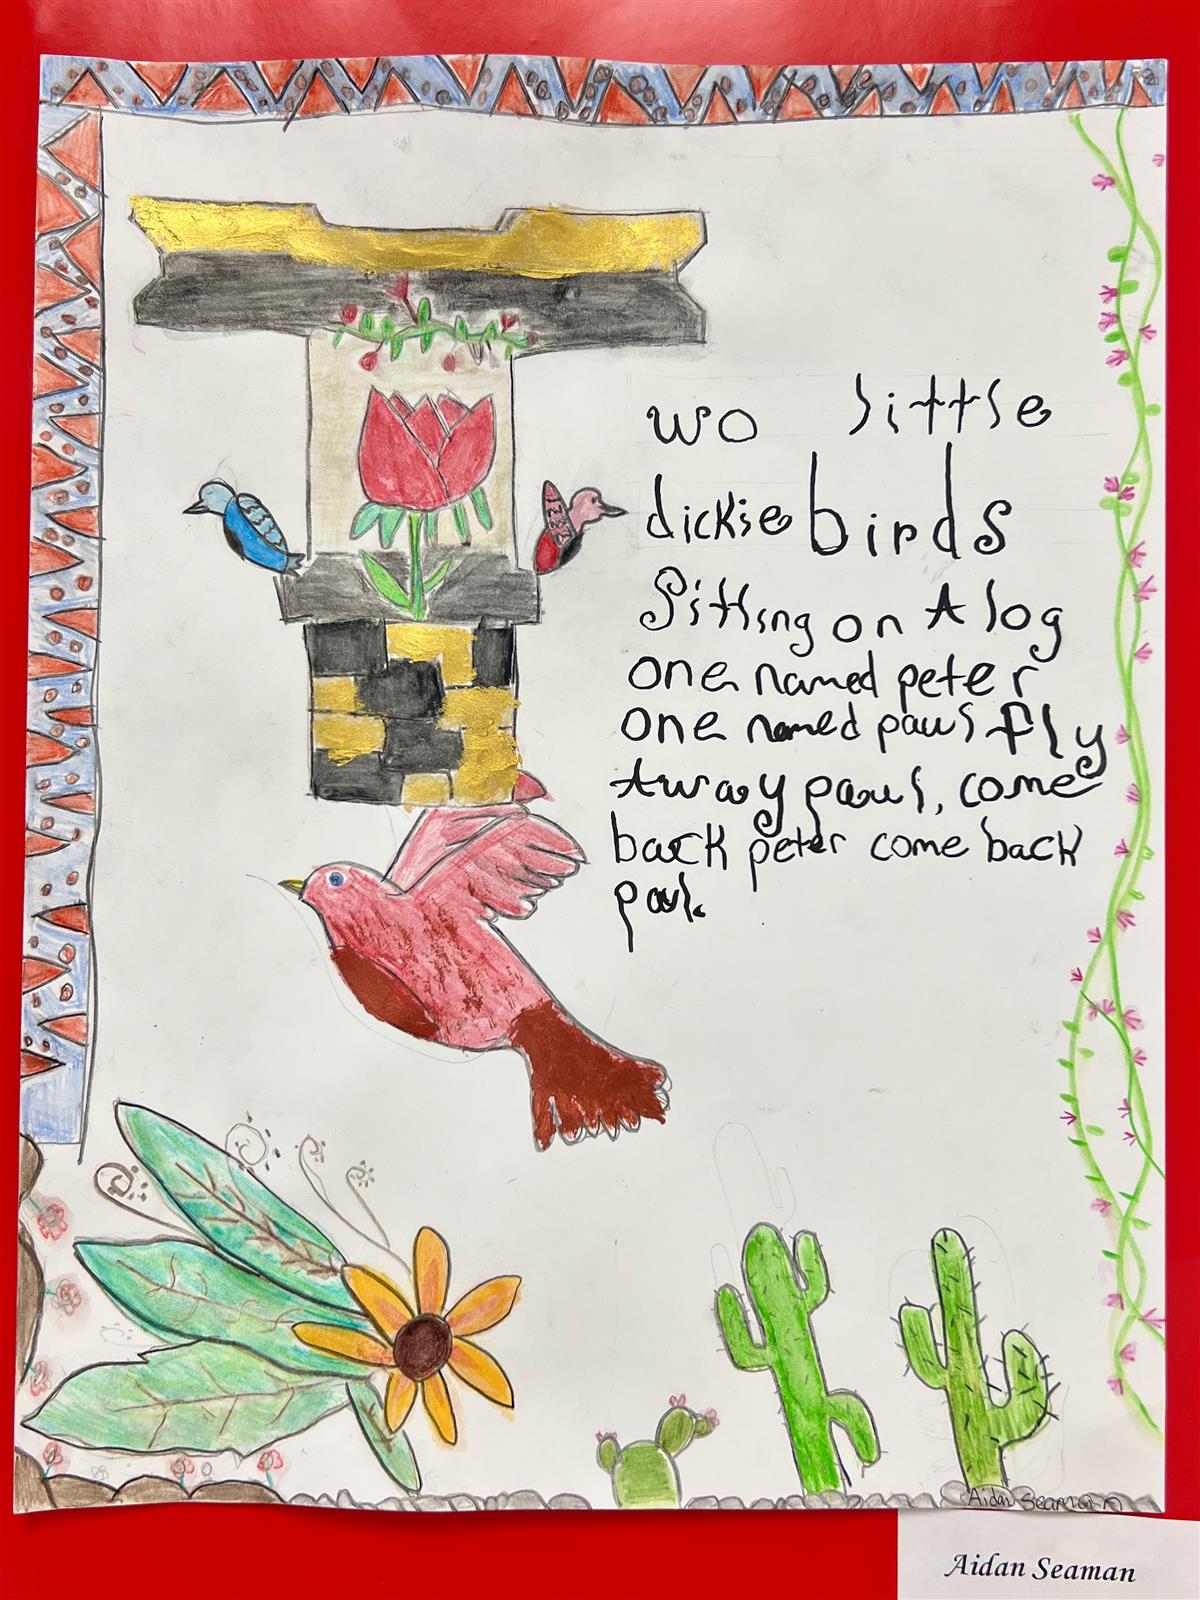 Two little
dickie birds
Sitting on A log
one named peter
one named paul fly
Away paul, come
back peter come back
paul.
Aidan Seaman
Aidan Seaman